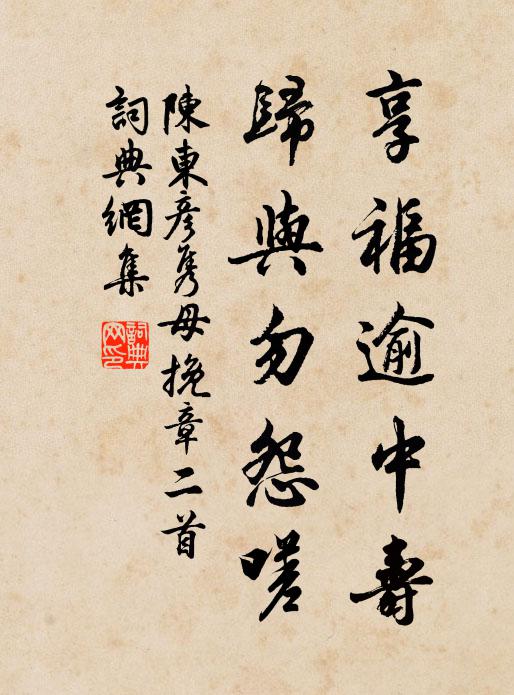 享福逾中壽
歸與勿怨嗟
陳東彥雋母挽章二首
詞典網集
詞典網印